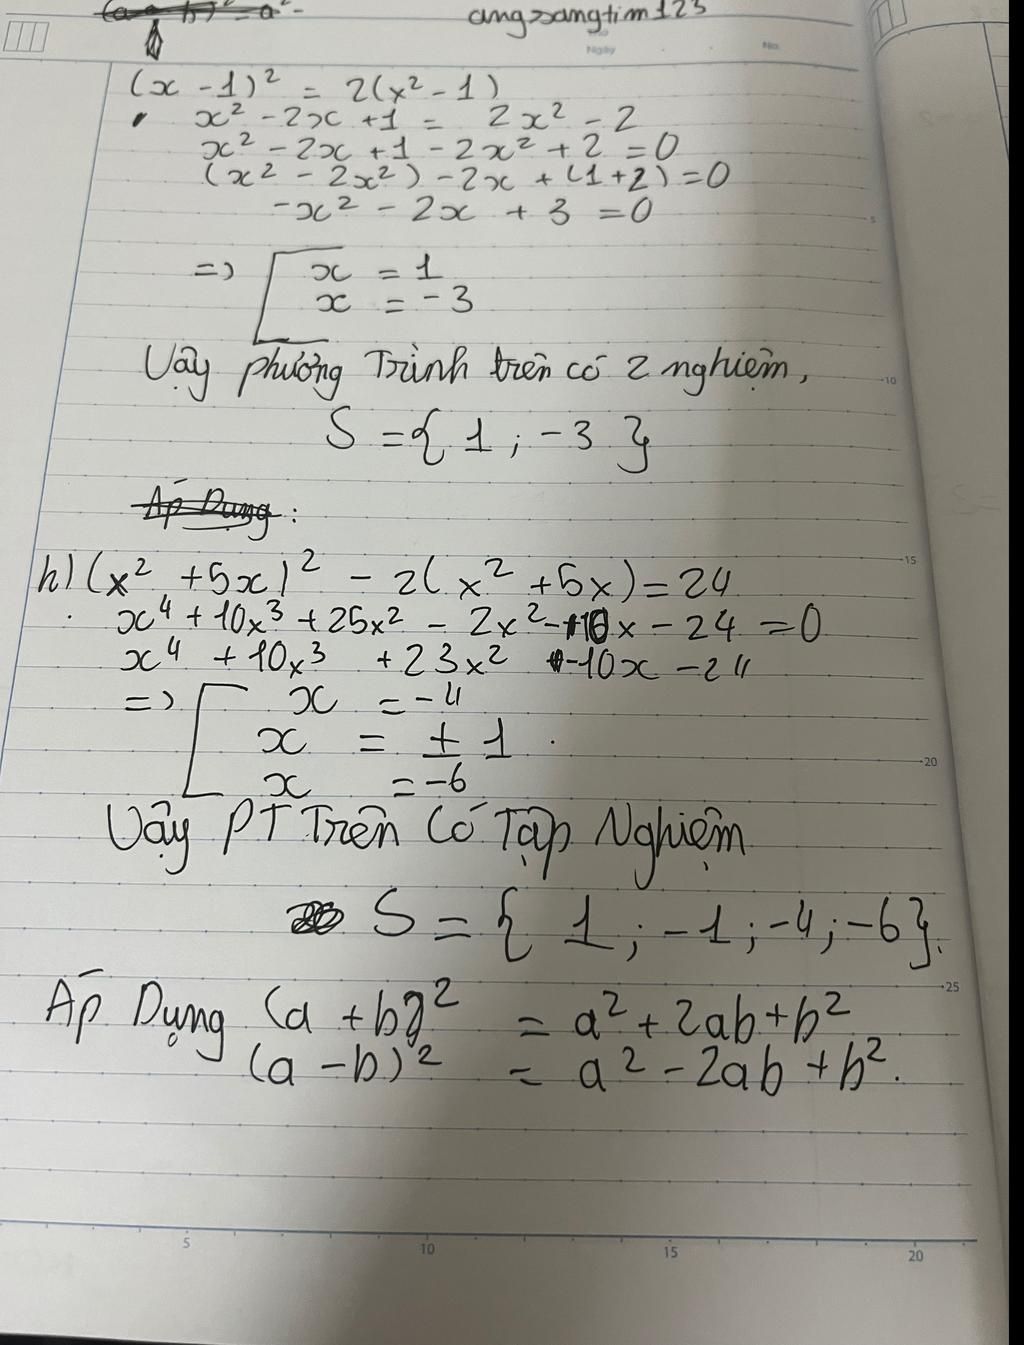 angsangtim123
Ngày
No.
(x - 1)² = 2(x² - 1)
x² - 2x + 1 = 2x² - 2
x² - 2x + 1 - 2x² + 2 = 0
(x² - 2x²) - 2x + (1+2) = 0
-x² - 2x + 3 = 0
=> [ x = 1
x = -3
Vậy phương Trình trên có 2 nghiệm,
S = { 1 ; -3 }
Áp Dụng :
h) (x² + 5x)² - 2(x² + 5x) = 24
x⁴ + 10x³ + 25x² - 2x² - 10x - 24 = 0
x⁴ + 10x³ + 23x² - 10x - 24
=> [ x = -4
x = ± 1 .
x = -6
Vậy PT Trên Có Tập Nghiệm
S = { 1 ; -1 ; -4 ; -6 }.
Áp Dụng (a + b)² = a² + 2ab + b²
(a - b)² = a² - 2ab + b².
5
10
15
20
25
5 10 15 20